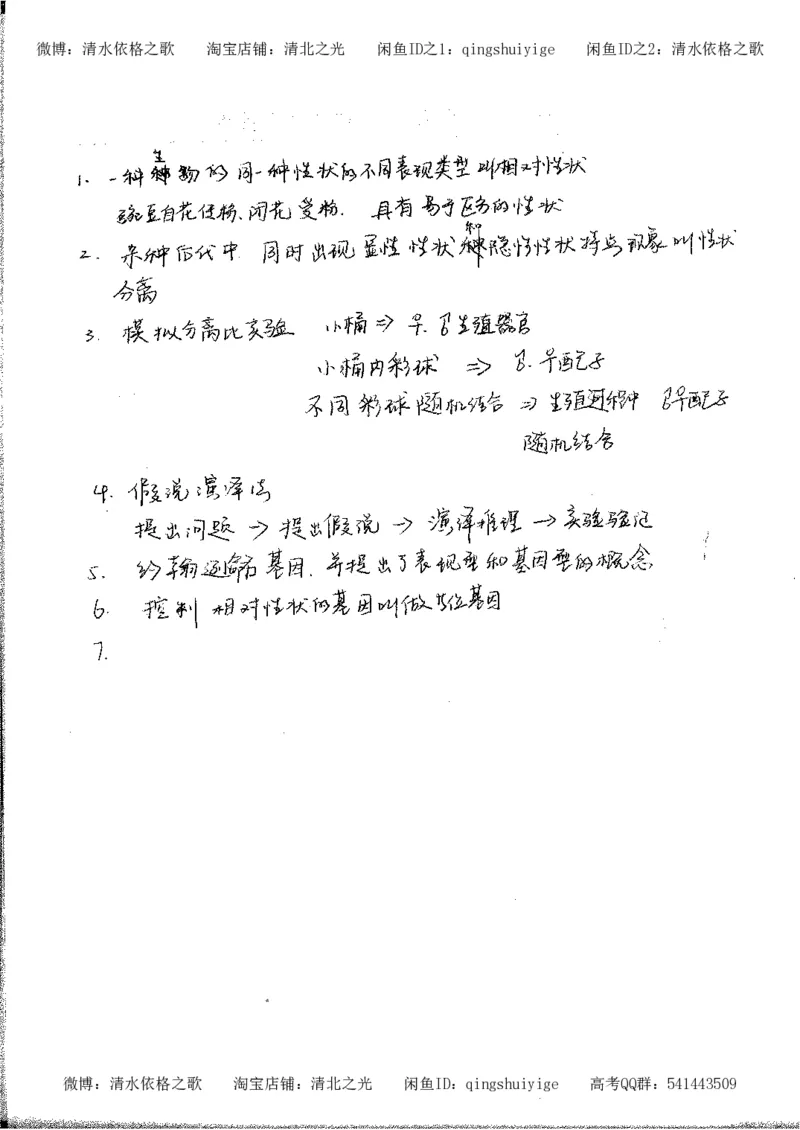 微博：清水依格之歌 淘宝店铺：清北之光 闲鱼ID之1：qingshuiyige 闲鱼ID之2：清水依格之歌
1. 一种生物的同一种性状的不同表现类型叫相对性状
豌豆自花传粉、闭花受粉. 具有易于区分的性状
2. 杂种后代中 同时出现显性性状和隐性性状 现象叫性状
分离
3. 模拟分离比实验 小桶⇒ ♀.♂生殖器官
小桶内彩球 ⇒ ♂.♀配子
不同彩球随机结合 ⇒ 生殖过程中 ♂♀配子
随机结合
4. 假说演绎法
提出问题 → 提出假说 → 演绎推理 → 实验验证
5. 约翰逊命名基因. 并提出了表现型和基因型的概念
6. 控制相对性状的基因叫做等位基因
7.
微博：清水依格之歌 淘宝店铺：清北之光 闲鱼ID：qingshuiyige 高考QQ群：541443509